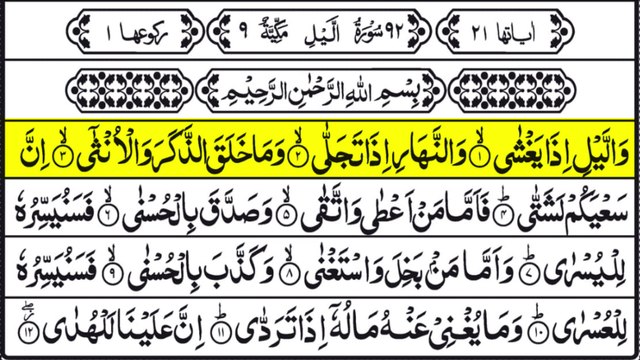 اٰیاتها ۲۱ ۹۲ سُوْرَۃُ الَّیْلِ مَکِّیَّۃٌ ۹ رکوعها ۱
بِسْمِ اللهِ الرَّحْمٰنِ الرَّحِیْمِ
وَالَّیْلِ اِذَا یَغْشٰی ۙ‏﴿۱﴾ وَالنَّهَارِ اِذَا تَجَلّٰی ۙ‏﴿۲﴾ وَمَا خَلَقَ الذَّکَرَ وَالْاُنْثٰۤی ۙ‏﴿۳﴾ اِنَّ
سَعْیَکُمْ لَشَتّٰی ؕ‏﴿۴﴾ فَاَمَّا مَنْ اَعْطٰی وَاتَّقٰی ۙ‏﴿۵﴾ وَصَدَّقَ بِالْحُسْنٰی ۙ‏﴿۶﴾ فَسَنُیَسِّرُهٗ
لِلْیُسْرٰی ؕ‏﴿۷﴾ وَاَمَّا مَنْۢ بَخِلَ وَاسْتَغْنٰی ۙ‏﴿۸﴾ وَکَذَّبَ بِالْحُسْنٰی ۙ‏﴿۹﴾ فَسَنُیَسِّرُهٗ
لِلْعُسْرٰی ؕ‏﴿۱۰﴾ وَمَا یُغْنِیْ عَنْهُ مَالُهٗۤ اِذَا تَرَدّٰی ؕ‏﴿۱۱﴾ اِنَّ عَلَیْنَا لَلْهُدٰی ۫ۖ‏﴿۱۲﴾